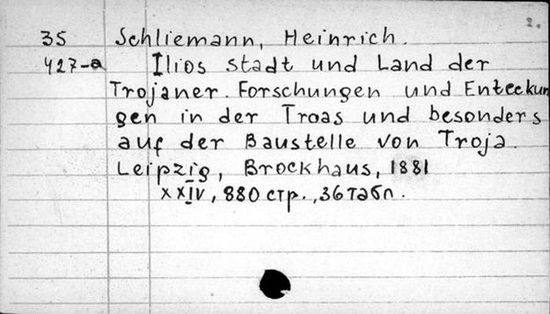 2.
35 Schliemann, Heinrich.
427-a Ilios stadt und Land der
Trojaner. Forschungen und Enteckun
gen in der Troas und besonders
auf der Baustelle von Troja.
Leipzig, Brockhaus, 1881
XXIV, 880 стр., 36 табл.